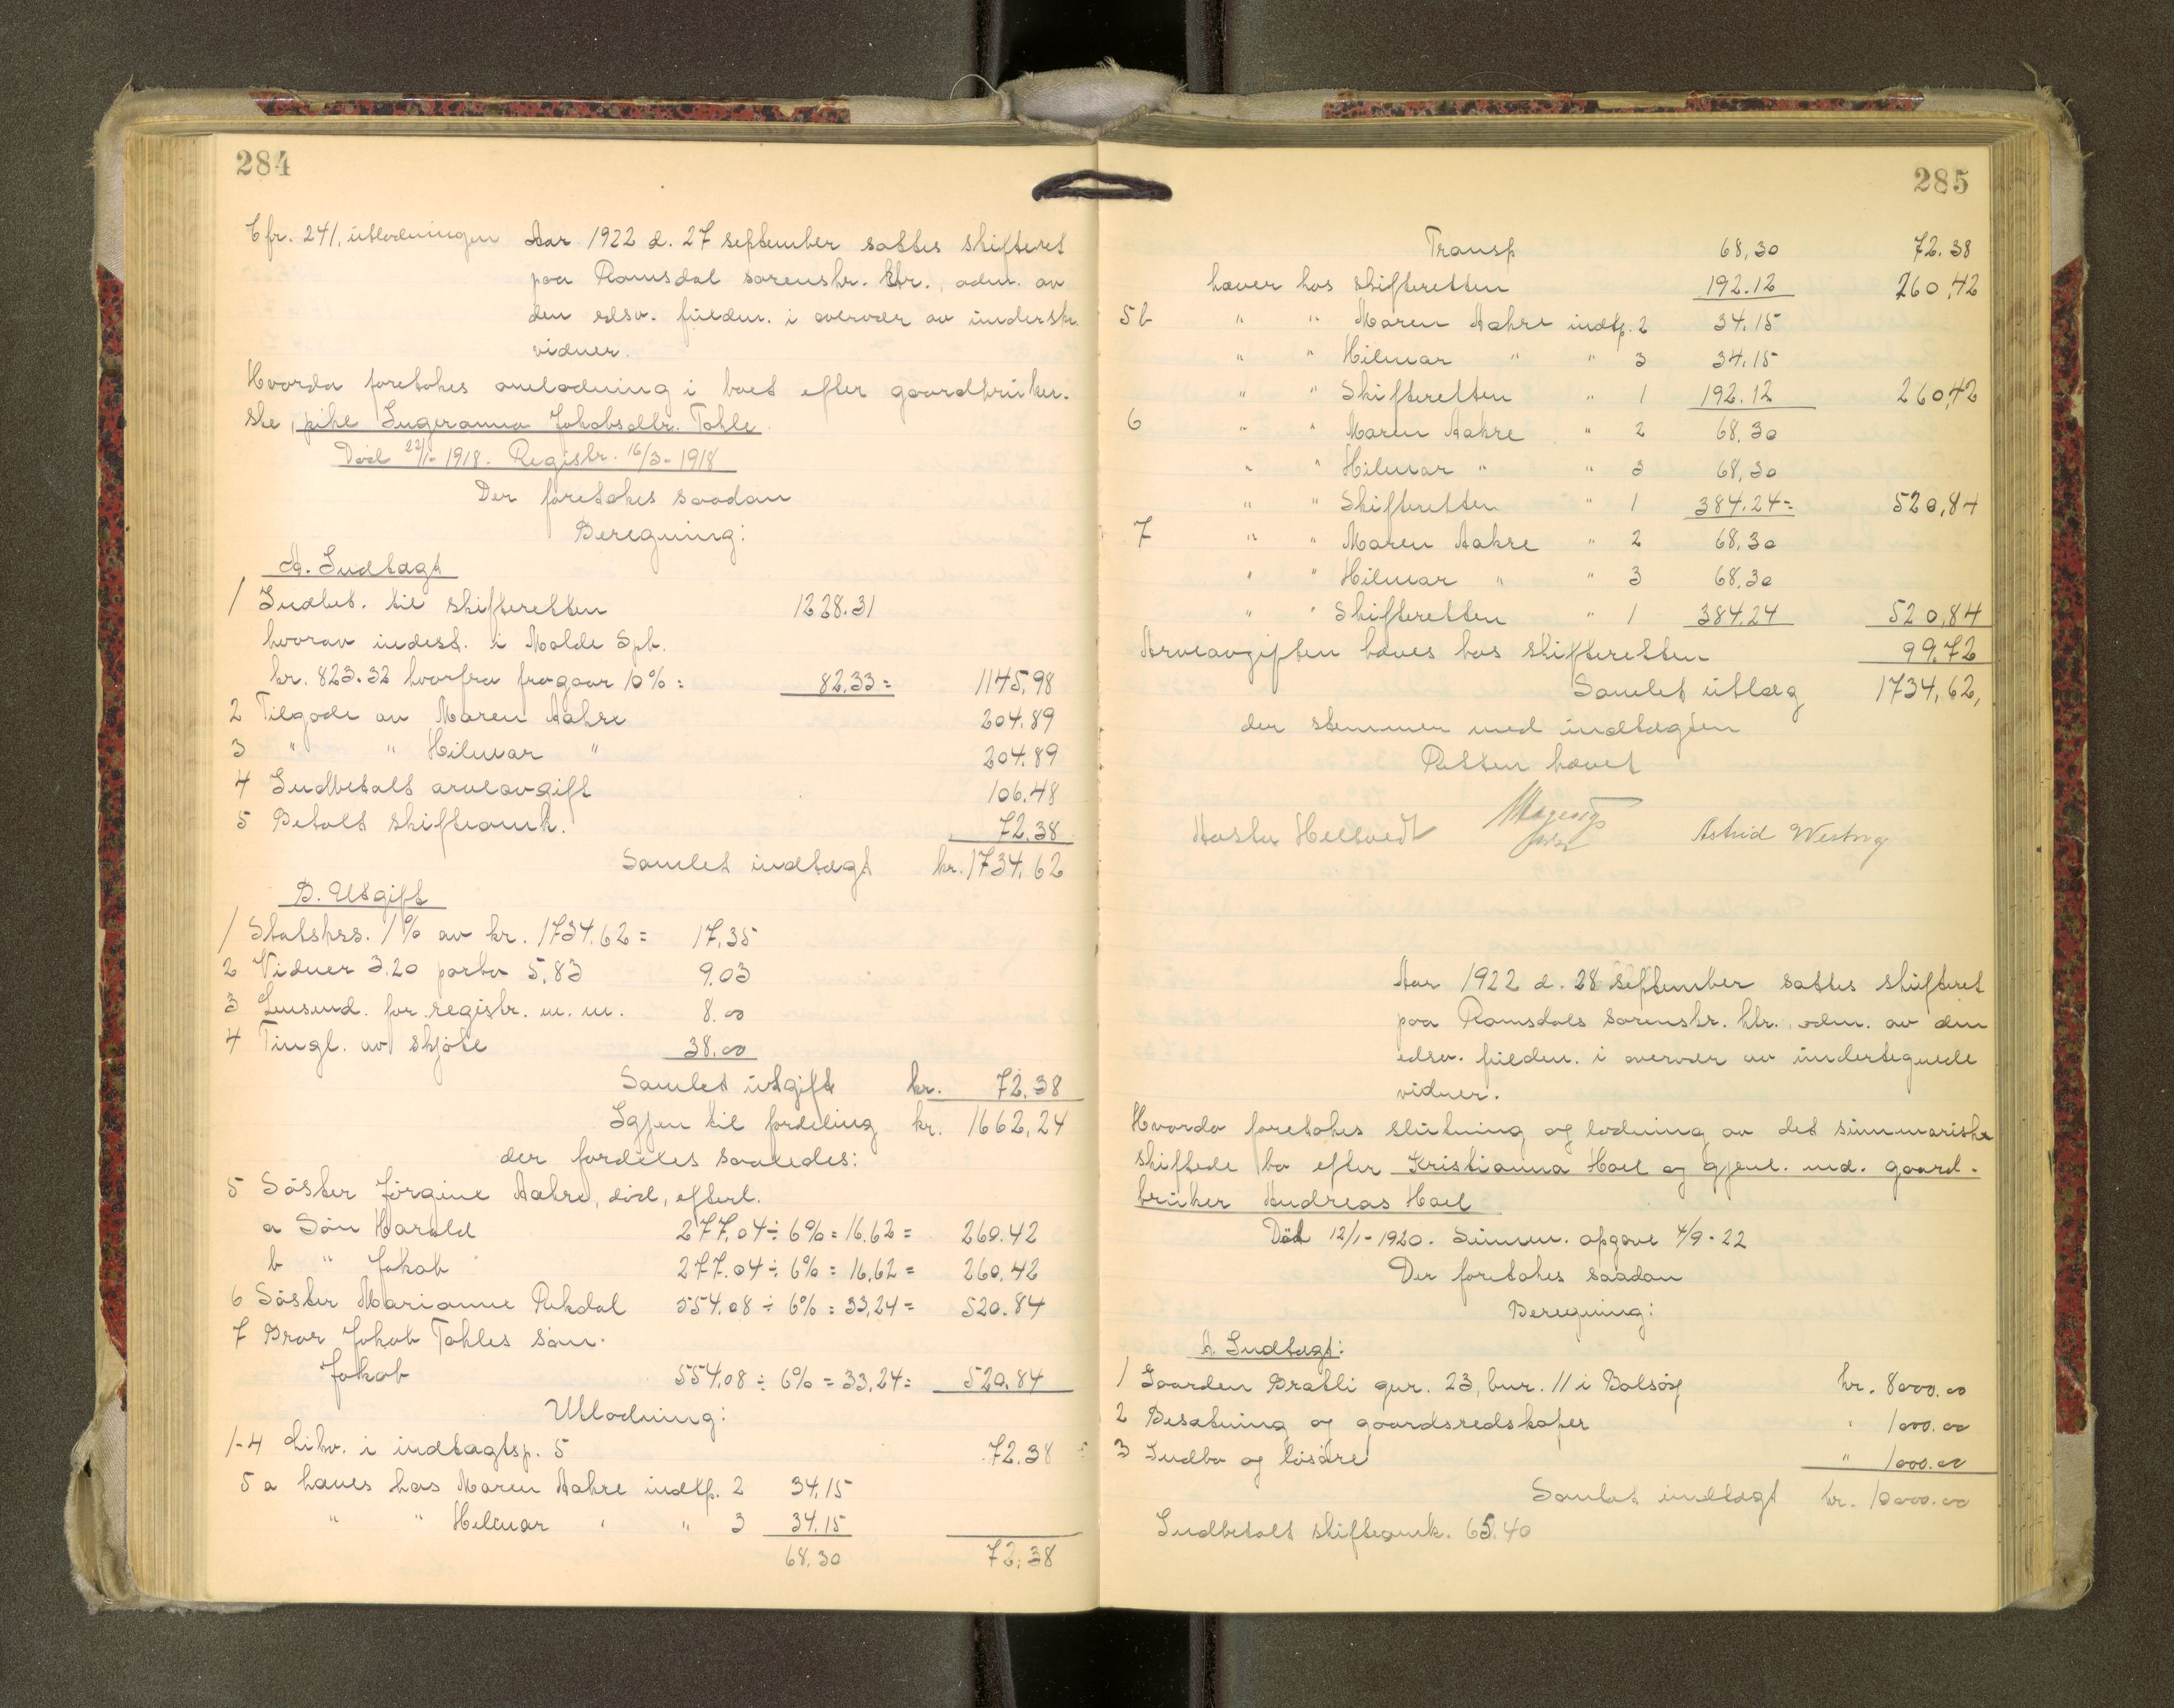 284
Cfr. 241. utlodningen Aar 1922 d. 27 september sattes skifteret
paa Romsdal sorenskr. ktr., adm. av
den edsv. fuldm. i overvær av underskr.
vidner.
Hvorda foretokes omlodning i boet efter gaardbruker-
ske, pike Ingeranna Jakobsdtr. Tokle.
Död 22/1-1918. Registr. 16/3-1918
Der foretokes saadan
Beregning:
A. Indtægt
1 Indbet. til skifteretten 1228.31
hvorav indest. i Molde Spb.
kr. 823.32 hvorfra fragaar 10% = 82.33 = 1145,98
2 Tilgode av Maren Aakre 204.89
3 " " Hilmar " 204.89
4 Indbetalt arveavgift 106.48
5 Betalt skifteomk. 72.38
Samlet indtægt kr. 1734,62
B. Utgift
1 Statskas. 1% av kr. 1734.62 = 17.35
2 Vidner 3.20 porto 5.83 9.03
3 Lensmd. for registr. m. m. 8.00
4 Tingl. av skjöte 38.00
Samlet utgift kr. 72.38
Igjen til fordeling kr. 1662,24
der fordeles saaledes:
5 Söster Jörgine Aakre, död, efterl.
a Sön Harald 277,04 ÷ 6% = 16.62 = 260.42
b " Jakob 277.04 ÷ 6% = 16,62 = 260,42
6 Söster Marianne Rekdal 554.08 ÷ 6% = 33,24 = 520.84
7 Bror Jakob Tokles sön.
Jakob 554,08 ÷ 6% = 33,24 = 520,84
Utlodning:
1-4 Likv. i indtægtsp. 5 72.38
5 a haves hos Maren Aakre indtp. 2 34.15
" " Hilmar " " 3 34.15
68.30 72,38
285
Transp 68,30 72.38
hæver hos skifteretten 192.12 260,42
5 b " " Maren Aakre indtp. 2 34.15
" " Hilmar " " 3 34.15
" " Skifteretten " 1 192.12 260,42
6 " " Maren Aakre " 2 68.30
" " Hilmar " " 3 68,30
" " Skifteretten " 1 384.24 = 520,84
7 " " Maren Aakre " 2 68.30
" " Hilmar " " 3 68.30
" " Skifteretten " 1 384.24 520,84
Arveavgiften hæves hos skifteretten 99,72
Samlet utlæg 1734,62,
der stemmer med indtægten
Retten hævet
Aasta Hellvedt Astrid Westvig
Aar 1922 d. 28 september sattes skifteret
paa Romsdals sorenskr. ktr., adm. av den
edsv. fuldm. i overvær av undertegnede
vidner.
Hvorda foretokes slutning og lodning av det summariske
skiftede bo efter Kristianna Hoel og gjenl. md. gaard-
bruker Andreas Hoel
Död 12/1-1920. Summ. opgave 4/9-22
Der foretokes saadan
Beregning:
A. Indtægt:
1 Gaarden Bratli gnr. 23, bnr. 11 i Bolsöy kr. 8000.00
2 Besætning og gaardsredskaper " 1000.00
3 Indbo og lösöre " 1000.00
Samlet indtægt kr. 10000.00
Indbetalt skifteomk. 65.40